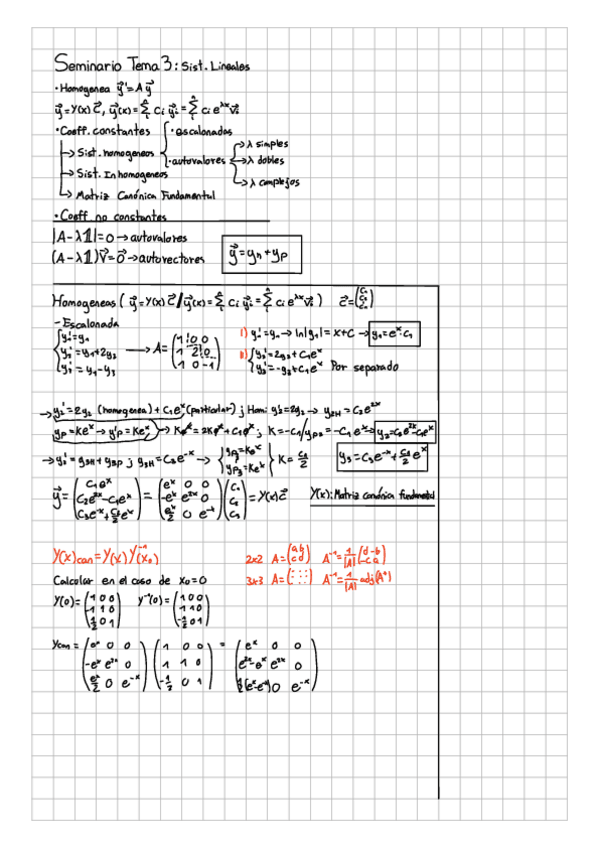 Seminario Tema 3: Sist. Lineales
· Homogenea y⃗' = A y⃗
y⃗ = Y(x) C⃗, y⃗(x) = Σ ci y⃗i = Σ ci e^λx v⃗i
· Coeff. constantes · escalonadas
→ Sist. homogeneos · autovalores → λ simples
→ λ dobles
→ λ complejos
→ Sist. Inhomogeneos
→ Matriz Canónica Fundamental
· Coeff no constantes
|A-λ1| = 0 → autovalores
(A-λ1)v⃗ = 0⃗ → autovectores
y⃗ = yh + yp
Homogeneas ( y⃗ = Y(x) C⃗ / y⃗(x) = Σ ci y⃗i = Σ ci e^λx v⃗i )
- Escalonada
{ y1' = y1
y2' = y1 + 2y2
y3' = y1 - y3
→ A = (1 0 0
1 2 0
1 0 -1)
I) y1' = y1 → ln|y1| = x + C → y1 = e^x · C1
II) { y2' = 2y2 + C1e^x
y3' = -y3 + C1e^x Por separado
→ y2' = 2y2 (homogenea) + C1e^x (particular) ; Hom: y2' = 2y2 → y2H = C2e^2x
yp = Ke^x → y'p = Ke^x → Ke^x = 2Ke^x + C1e^x ; K = -C1 / yp2 = -C1e^x → y2 = C2e^2x - C1e^x
→ y3' = y3H + y3p ; y3H = C3e^-x → { yp = Ke^x
yp3 = Ke^x } K = C1/2 y3 = C3e^-x + C1/2 e^x
y⃗ = (C1e^x
C2e^2x - C1e^x
C3e^-x + C1/2 e^x) = (e^x 0 0
-e^x e^2x 0
e^x/2 0 e^-x) (C1
C2
C3) = Y(x) C⃗ Y(x): Matriz canónica fundamental
Y(x)can = Y(x) Y^-1(x0)
2x2 A = (a b
c d) A^-1 = 1/|A| (d -b
-c a)
Calcular en el caso de x0 = 0
3x3 A = (: : :) A^-1 = 1/|A| adj(A^t)
Y(0) = (1 0 0
-1 1 0
1/2 0 1) Y^-1(0) = (1 0 0
1 1 0
-1/2 0 1)
Ycan = (e^x 0 0
-e^x e^2x 0
e^x/2 0 e^-x) (1 0 0
1 1 0
-1/2 0 1) = (e^x 0 0
e^2x - e^x e^2x 0
1/2(e^x - e^-x) 0 e^-x)